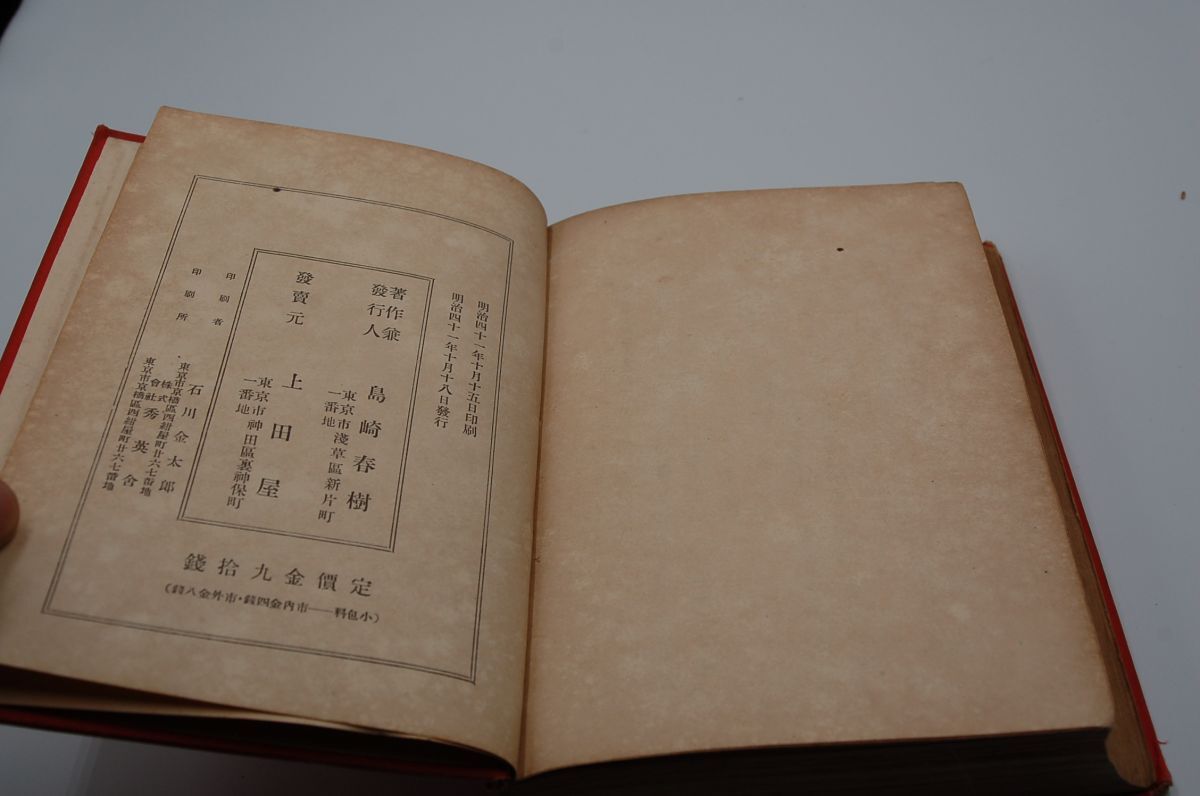 明治四十一年十月十五日印刷
明治四十一年十月十八日發行
著作兼
發行人
島崎春樹
東京市淺草區新片町
一番地
發賣元
上田屋
東京市神田區裏神保町
一番地
印刷者
石川金太郎
東京市京橋區西紺屋町廿六七番地
印刷所
株式
會社
秀英舍
東京市京橋區西紺屋町廿六七番地
定價金九拾錢
(小包料——市內金四錢・市外金八錢)